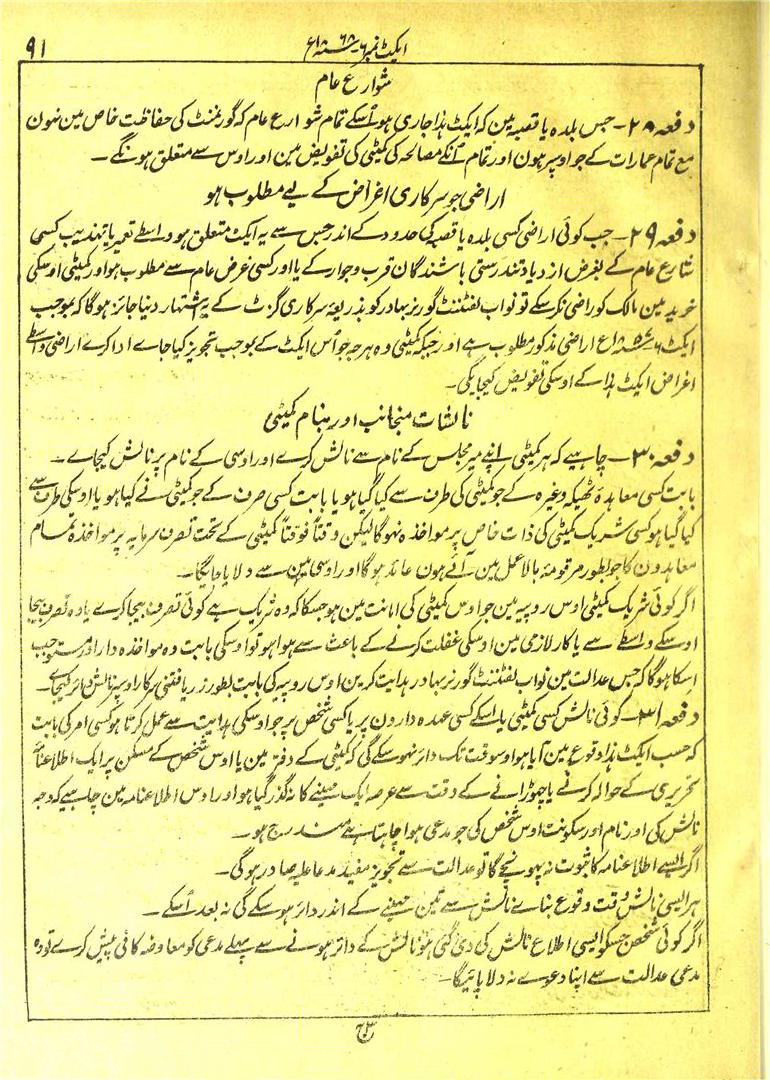 ۹۱
ایکٹ نمبر ۶ ۱۸۶۸ع
شوارع عام
دفعہ ۲۸ ۔ جس بلدہ یا قصبہ مین کہ ایکٹ ہذا جاری ہو اُسکے تمام شوارع عام کہ گورنمنٹ کی حفاظت خاص مین نہون
مع تمام عمارات کے جو اوسپر ہون اور تمام اُنکے مصالحہ کی کمیٹی کی تفویض مین اور اوس سے متعلق ہونگے ۔
اراضی جو سرکاری اغراض کے لیے مطلوب ہو
دفعہ ۲۹ ۔ جب کوئی اراضی کسی بلدہ یا قصبہ کی حدود کے اندر جس سے یہ ایکٹ متعلق ہو واسطے تعمیر یا تہذیب کسی
شارع عام کے بغرض ازدیاد تندرستی باشندگان قرب و جوار کے یا اور کسی غرض عام سے مطلوب ہو اور کمیٹی اوسکی
خرید مین مالک کو راضی نکر سکے تو نواب لفٹننٹ گورنر بہادر کو بذریعۂ سرکاری گزٹ کے یہ اشتہار دینا جائز ہوگا کہ بموجب
ایکٹ ۶ ۱۸۵۷ع اراضی مذکور مطلوب ہے اور جبکہ کمیٹی وہ ہرجہ جو اُس ایکٹ کے بموجب تجویز کیا جاے ادا کرے اراضی واسطے
اغراض ایکٹ ہذا کے اوسکی تفویض کیجایگی ۔
نالشات منجانب اور بنام کمیٹی
دفعہ ۳۰ ۔ چاہیے کہ ہر کمیٹی اپنے میر مجلس کے نام سے نالش کرے اور اوسی کے نام پر نالش کیجاے ۔
بابت کسی معاہدہ ٹھیکہ وغیرہ کے جو کمیٹی کی طرف سے کیا گیا ہو یا بابت کسی صرف کے جو کمیٹی نے کیا ہو یا اوسکی طرف سے
کیا گیا ہو کسی شریک کمیٹی کی ذات خاص پر مواخذہ نہوگا لیکن وقتاً فوقتاً کمیٹی کے تحت تصرف سرمایہ پر مواخذہ تمام
معاہدون کا جو بطور مرقومۂ بالا عمل مین آئے ہون عائد ہوگا اور اوسی مین سے دلایا جایگا ۔
اگر کوئی شریک کمیٹی اوس روپیہ مین جو اوس کمیٹی کی امانت مین ہو جسکا کہ وہ شریک ہے کوئی تصرف بیجا کرے یا وہ تصرف بیجا
اوسکے واسطے سے یا کار لازمی مین اوسکی غفلت کرنے کے باعث سے ہوا ہو تو اوسکی بابت وہ مواخذہ دار اور مستوجب
اسکا ہوگا کہ جس عدالت مین نواب لفٹننٹ گورنر بہادر ہدایت کرین اوس روپیہ کی بابت بطور زر یافتنی سرکار اوسپر نالش دائر کیجاے ۔
دفعہ ۳۱ ۔ کوئی نالش کسی کمیٹی یا اسکے کسی عہدہ دارون پر یا کسی شخص پر جو اوسکی ہدایت سے عمل کرتا ہو کسی امر کی بابت
کہ حسب ایکٹ ہذا وقوع مین آیا ہو اوسوقت تک دائر نہو سکے گی کہ کمیٹی کے دفتر مین یا اوس شخص کے مسکن پر ایک اطلاعنامہ
تحریری کے حوالہ کرنے یا چھوڑانے کے وقت سے عرصہ ایک مہینے کا نہ گذر گیا ہو اور اوس اطلاعنامہ مین چاہیے کہ وجہ
نالش کی اور نام اور سکونت اوس شخص کی جو مدعی ہوا چاہتا ہے مندرج ہو ۔
اگر ایسے اطلاعنامہ کا ثبوت نہ پہونچے گا تو عدالت سے تجویز مفید مدعا علیہ صادر ہوگی ۔
ہر ایسی نالش وقت وقوع بناے نالش سے تین مہینے کے اندر دائر ہو سکے گی نہ بعد اُسکے ۔
اگر کوئی شخص جسکو ایسی اطلاع نالش کی دی گئی ہو نالش کے دائر ہونے سے پہلے مدعی کو معاوضہ کافی پیش کرے تو وہ
مدعی عدالت سے اپنا دعوے نہ دلا پائیگا ۔